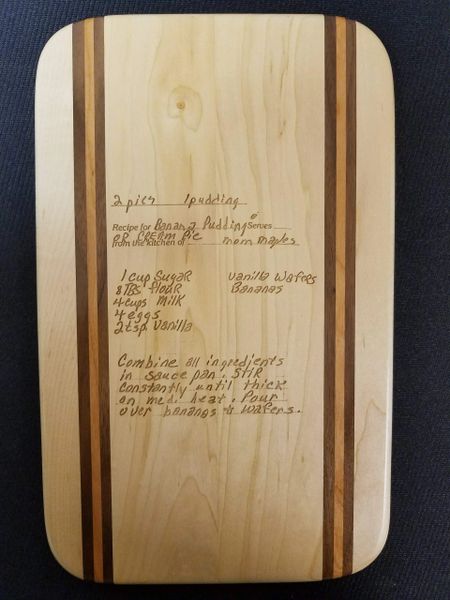 2 pies 1 pudding
Recipe for Banana Pudding Serves
or CREAM PIE
From the kitchen of mom maples
1 cup Sugar vanilla Wafers
8 TBS flour Bananas
4 cups Milk
4 eggs
2 tsp Vanilla
Combine all ingredients
in sauce pan. Stir
constantly until thick
on med. heat. Pour
over bananas & wafers.